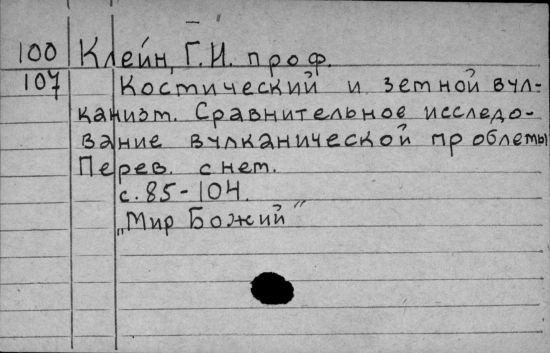 100 Клейн, Г. И. проф.
107 Костический и зетной вул-
канизт. Сравнительное исследо-
вание вулканической проблеты
Перев. с нет.
с. 85-104.
„Мир Божий"